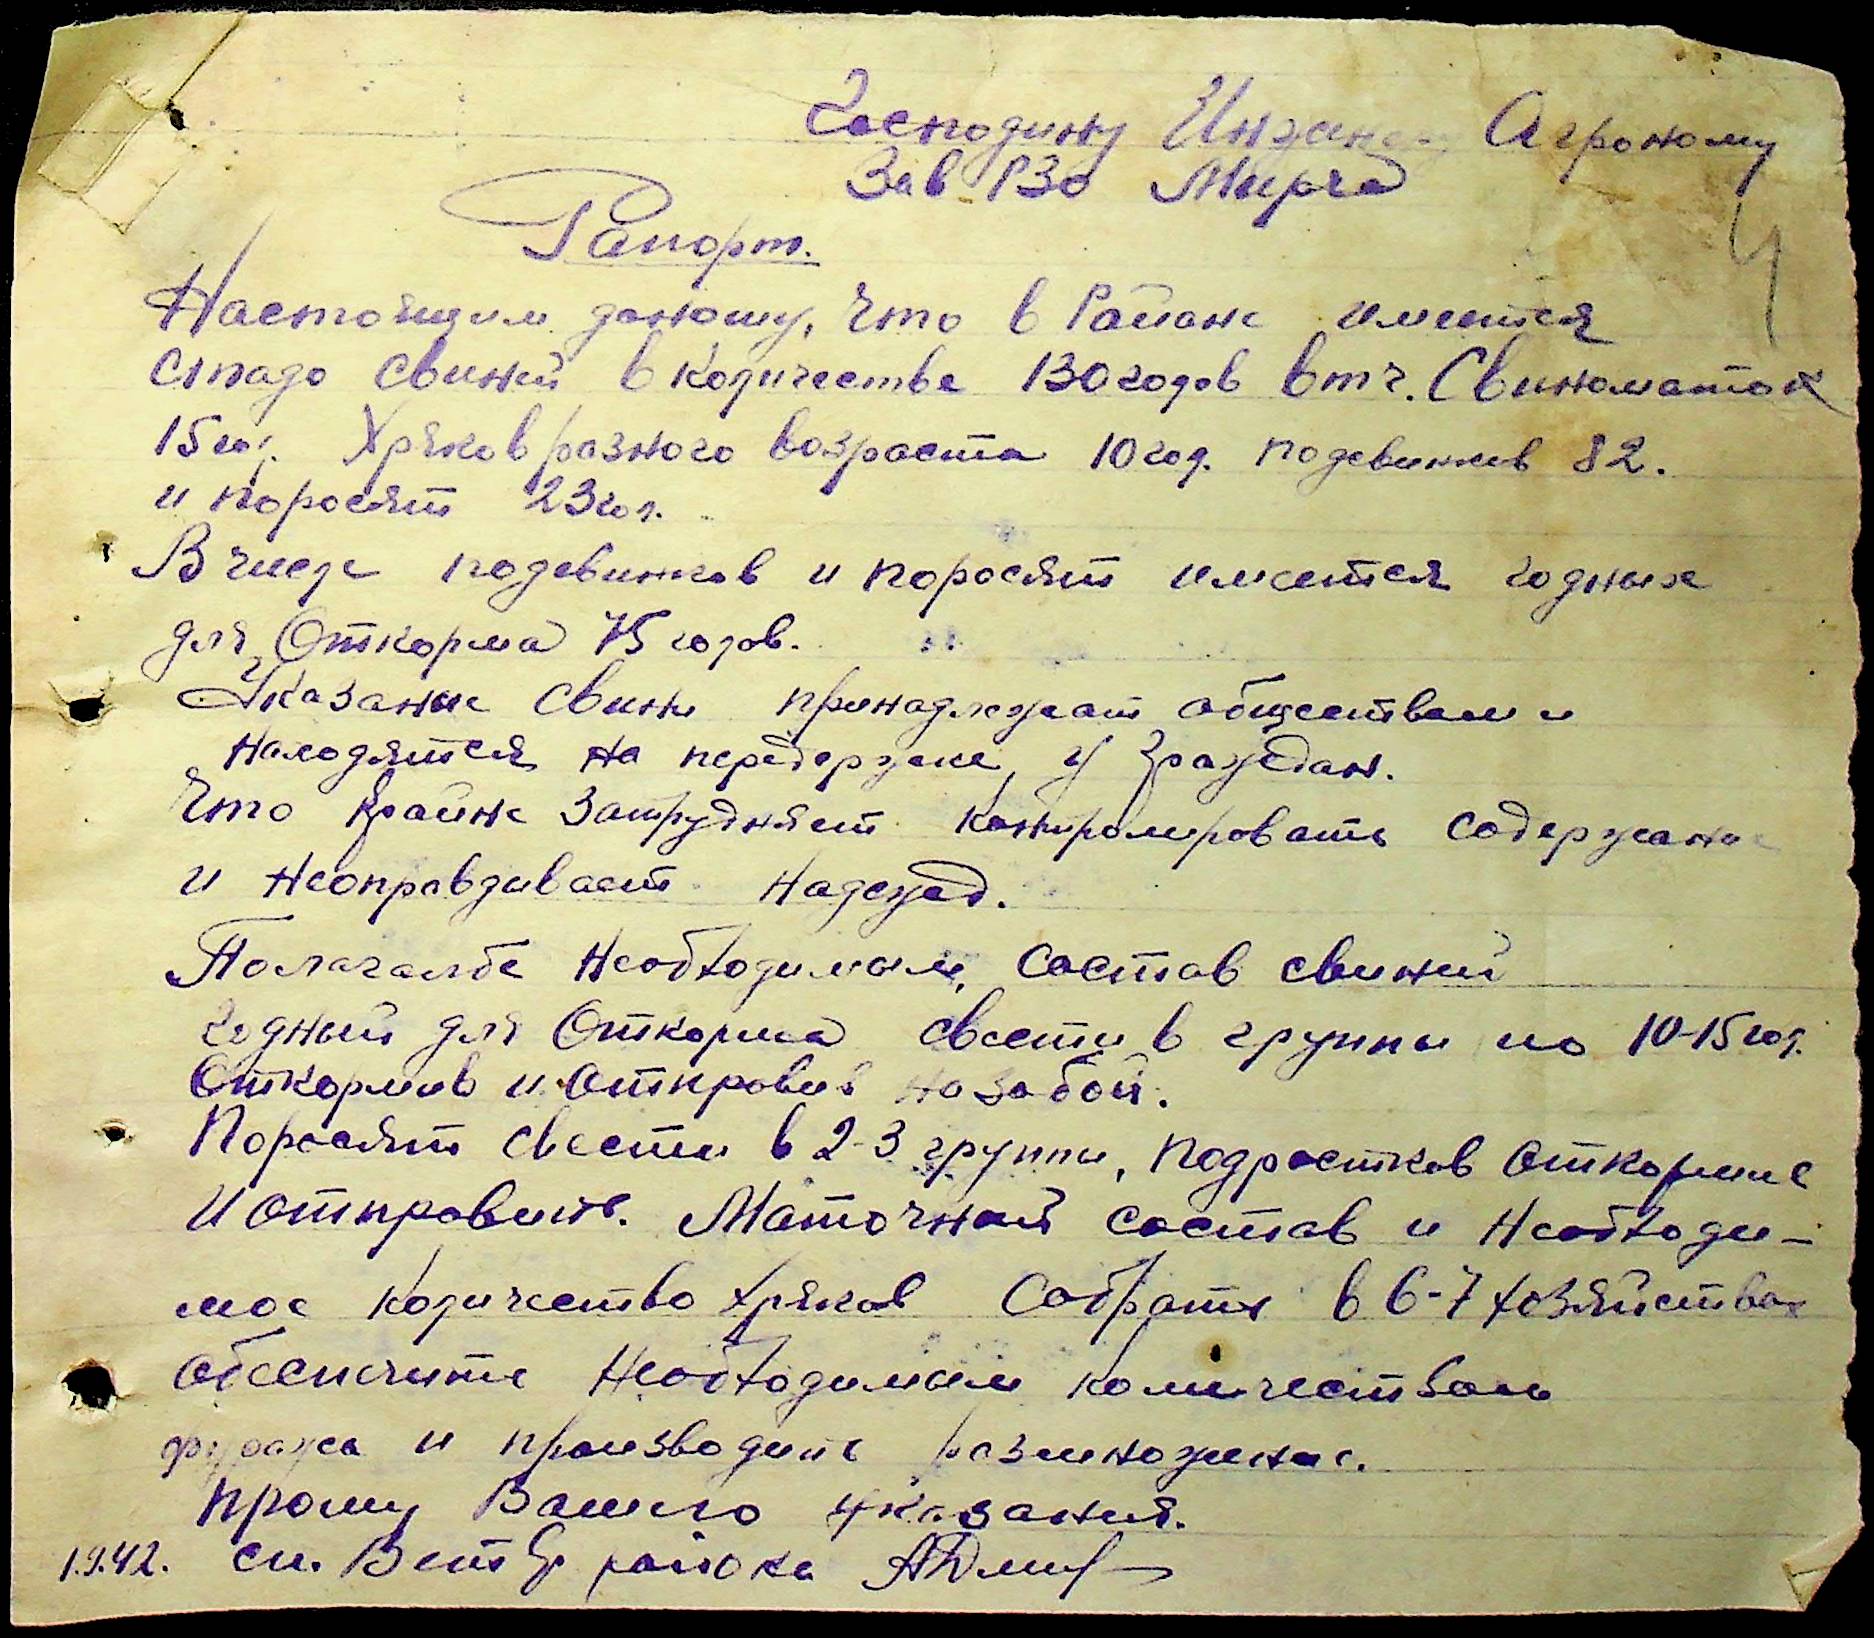 Господину Инжене Агроному
Зав РЗО Мирча
Рапорт.
Настоящим доношу, что в Районе имеится
стадо свиней в количестве 130 голов в тч. Свиноматок
15 гол. Хряков разного возраста 10 гол. подсвинков 82.
и поросят 23 гол.
В числе подсвинков и поросят имеется годных
для Откорма 75 голов.
Указаные свини принадлежат обществам и
находятся на передержке у граждан.
Что крайне затрудняет контролировать содержание
и неоправдывает надежд.
Полагалбе необходимым, состав свиней
годный для Откорма свести в группы по 10-15 гол.
Откормив и отправив на забой.
Поросят свести в 2-3 группы, подростков откормить
и отправить. Маточный состав и необходи-
мое количество хряков собрать в 6-7 хозяйствах
обеспечить необходимым количеством
фуража и производить размножение.
Прошу Вашего указания.
1.9.42. Вет района